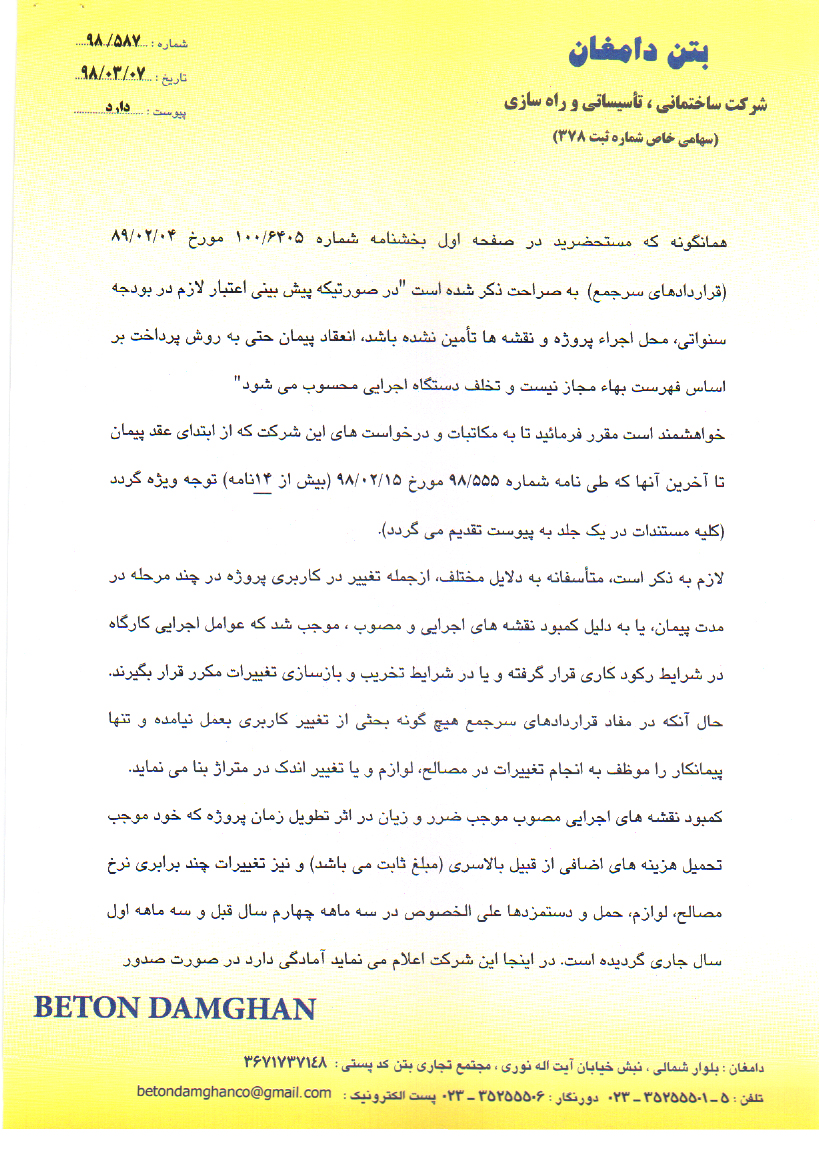 بتن دامغان
شرکت ساختمانی ، تأسیساتی و راه سازی
(سهامی خاص شماره ثبت ۳۷۸)
شماره : ۹۸/۵۸۷
تاریخ : ۹۸/۰۳/۰۷
پیوست : دارد
همانگونه که مستحضرید در صفحه اول بخشنامه شماره ۱۰۰/۶۴۰۵ مورخ ۸۹/۰۲/۰۴
(قراردادهای سرجمع) به صراحت ذکر شده است "در صورتیکه پیش بینی اعتبار لازم در بودجه
سنواتی، محل اجراء پروژه و نقشه ها تأمین نشده باشد، انعقاد پیمان حتی به روش پرداخت بر
اساس فهرست بهاء مجاز نیست و تخلف دستگاه اجرایی محسوب می شود"
خواهشمند است مقرر فرمائید تا به مکاتبات و درخواست های این شرکت که از ابتدای عقد پیمان
تا آخرین آنها که طی نامه شماره ۹۸/۵۵۵ مورخ ۹۸/۰۲/۱۵ (بیش از ۱۴نامه) توجه ویژه گردد
(کلیه مستندات در یک جلد به پیوست تقدیم می گردد).
لازم به ذکر است، متأسفانه به دلایل مختلف، ازجمله تغییر در کاربری پروژه در چند مرحله در
مدت پیمان، یا به دلیل کمبود نقشه های اجرایی و مصوب ، موجب شد که عوامل اجرایی کارگاه
در شرایط رکود کاری قرار گرفته و یا در شرایط تخریب و بازسازی تغییرات مکرر قرار بگیرند.
حال آنکه در مفاد قراردادهای سرجمع هیچ گونه بحثی از تغییر کاربری بعمل نیامده و تنها
پیمانکار را موظف به انجام تغییرات در مصالح، لوازم و یا تغییر اندک در متراژ بنا می نماید.
کمبود نقشه های اجرایی مصوب موجب ضرر و زیان در اثر تطویل زمان پروژه که خود موجب
تحمیل هزینه های اضافی از قبیل بالاسری (مبلغ ثابت می باشد) و نیز تغییرات چند برابری نرخ
مصالح، لوازم، حمل و دستمزدها علی الخصوص در سه ماهه چهارم سال قبل و سه ماهه اول
سال جاری گردیده است. در اینجا این شرکت اعلام می نماید آمادگی دارد در صورت صدور
BETON DAMGHAN
دامغان : بلوار شمالی ، نبش خیابان آیت اله نوری ، مجتمع تجاری بتن کد پستی : ۳۶۷۱۷۳۷۱۴۸
تلفن : ۵ - ۳۵۲۵۵۵۰۱ - ۰۲۳ دورنگار : ۳۵۲۵۵۵۰۶ - ۰۲۳ پست الکترونیک : betondamghanco@gmail.com